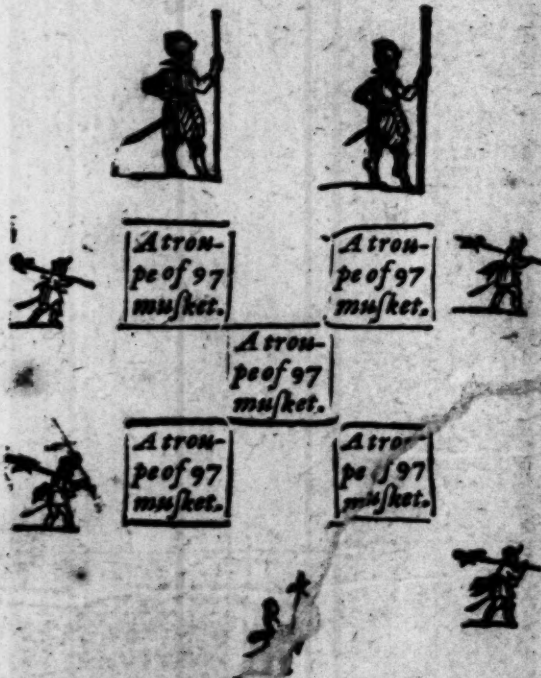 A trou-
pe of 97
muſket.
A trou-
pe of 97
muſket.
A trou-
pe of 97
muſket.
A trou-
pe of 97
muſket.
A trou-
pe of 97
muſket.